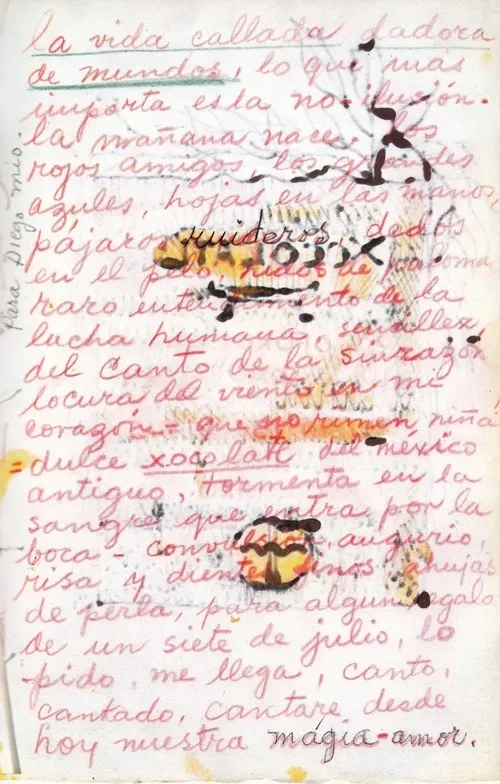 la vida callada dadora
de mundos, lo que más
importa es la no-ilusión.
la mañana nace, los
rojos amigos, los grandes
azules, hojas en las manos,
pájaros ruideros, dedos
en el pelo, nidos de paloma
raro entendimiento de la
lucha humana, sencillez,
del canto de la sinrazón
locura del viento en mi
corazón - que no rimen niña
= dulce xocolatl del méxico
antiguo, tormenta en la
sangre que entra por la
boca - convulsión, augurio,
risa y dientes finos ahujas
de perla, para algun regalo
de un siete de julio, lo
pido, me llega, canto,
cantado, cantare desde
hoy nuestra mágia-amor.
Para Diego mio.